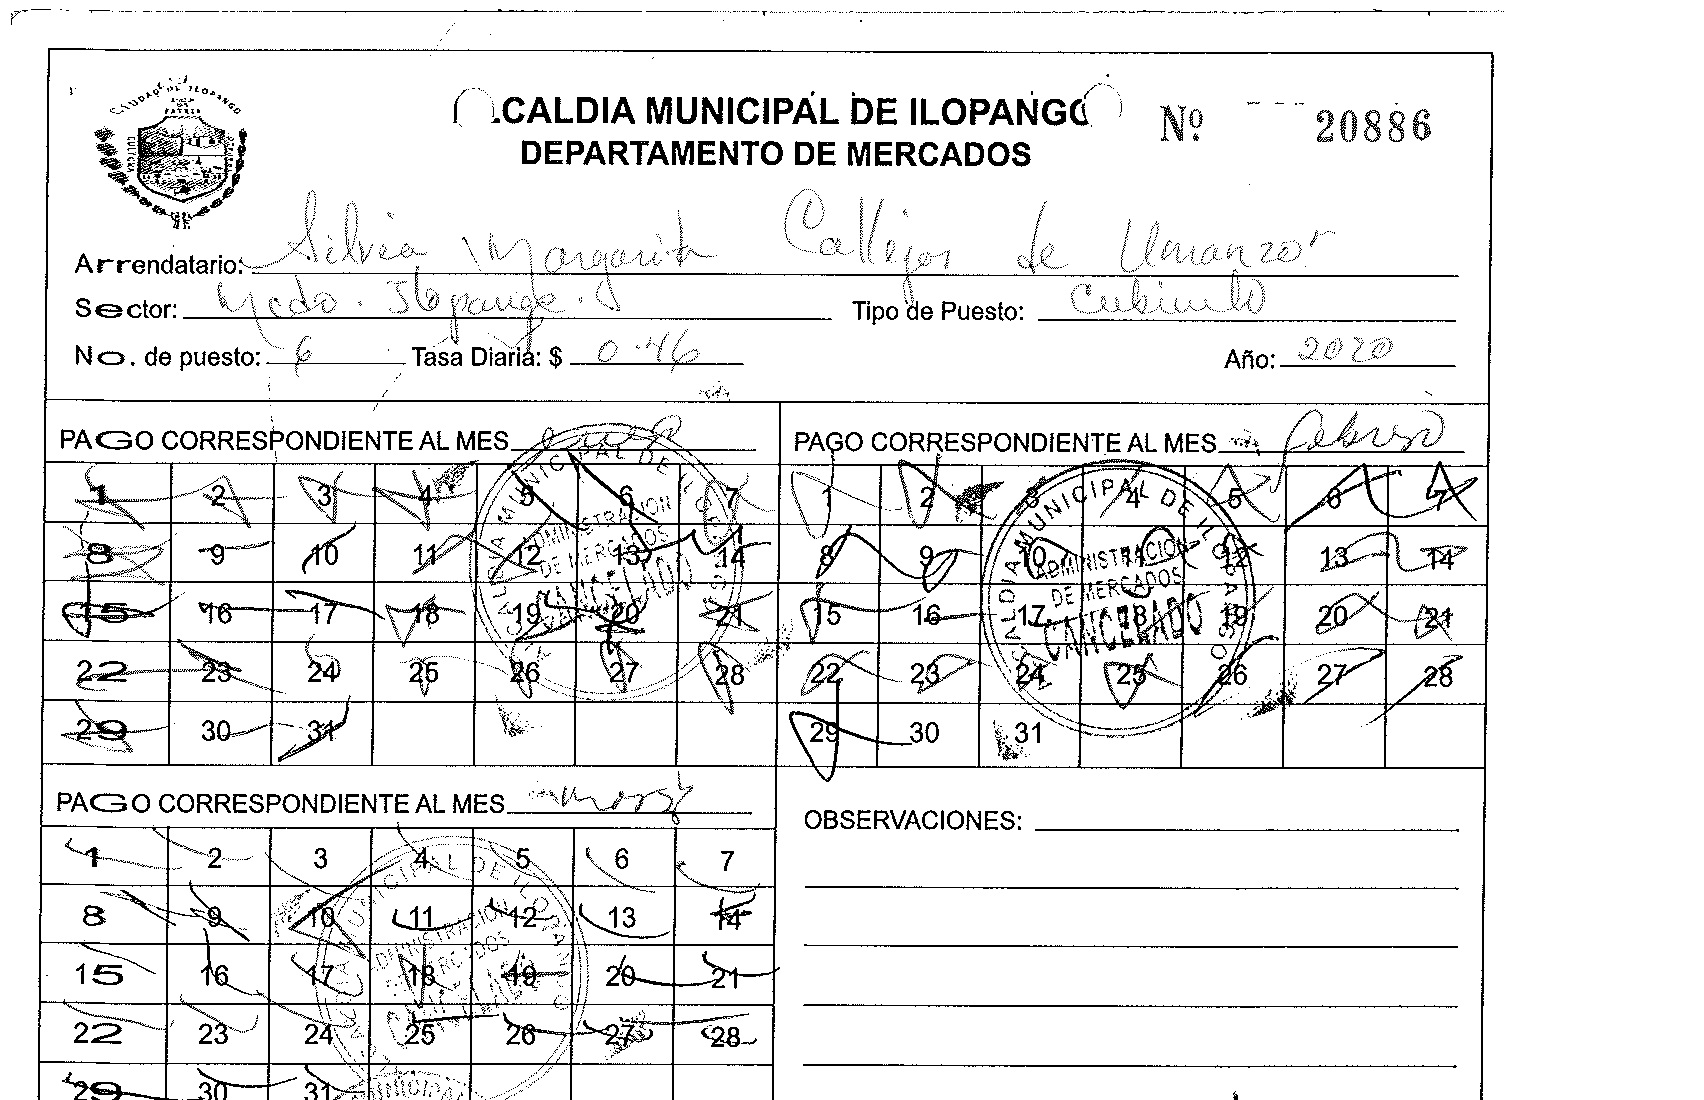 CIUDAD DE ILOPANGO
ALCALDIA MUNICIPAL DE ILOPANGO
Nº 20886
DEPARTAMENTO DE MERCADOS
Arrendatario: Silvia Margarita Callejos de Umanzor
Sector: Mcdo. Ilopango.
Tipo de Puesto: Cubiculo
No. de puesto: 6 Tasa Diaria: $ 0.46 Año: 2020
PAGO CORRESPONDIENTE AL MES enero
1 2 3 4 5 6 7
8 9 10 11 12 13 14
15 16 17 18 19 20 21
22 23 24 25 26 27 28
29 30 31
ALCALDIA MUNICIPAL DE ILOPANGO
ADMINISTRACION
DE MERCADOS
CANCELADO
PAGO CORRESPONDIENTE AL MES febrero
1 2 3 4 5 6 7
8 9 10 11 12 13 14
15 16 17 18 19 20 21
22 23 24 25 26 27 28
29 30 31
ALCALDIA MUNICIPAL DE ILOPANGO
ADMINISTRACION
DE MERCADOS
CANCELADO
PAGO CORRESPONDIENTE AL MES marzo
1 2 3 4 5 6 7
8 9 10 11 12 13 14
15 16 17 18 19 20 21
22 23 24 25 26 27 28
29 30 31
MUNICIPAL DE ILOPANGO
ADMINISTRACION
DE MERCADOS
CANCELADO
MUNICIPAL
OBSERVACIONES: